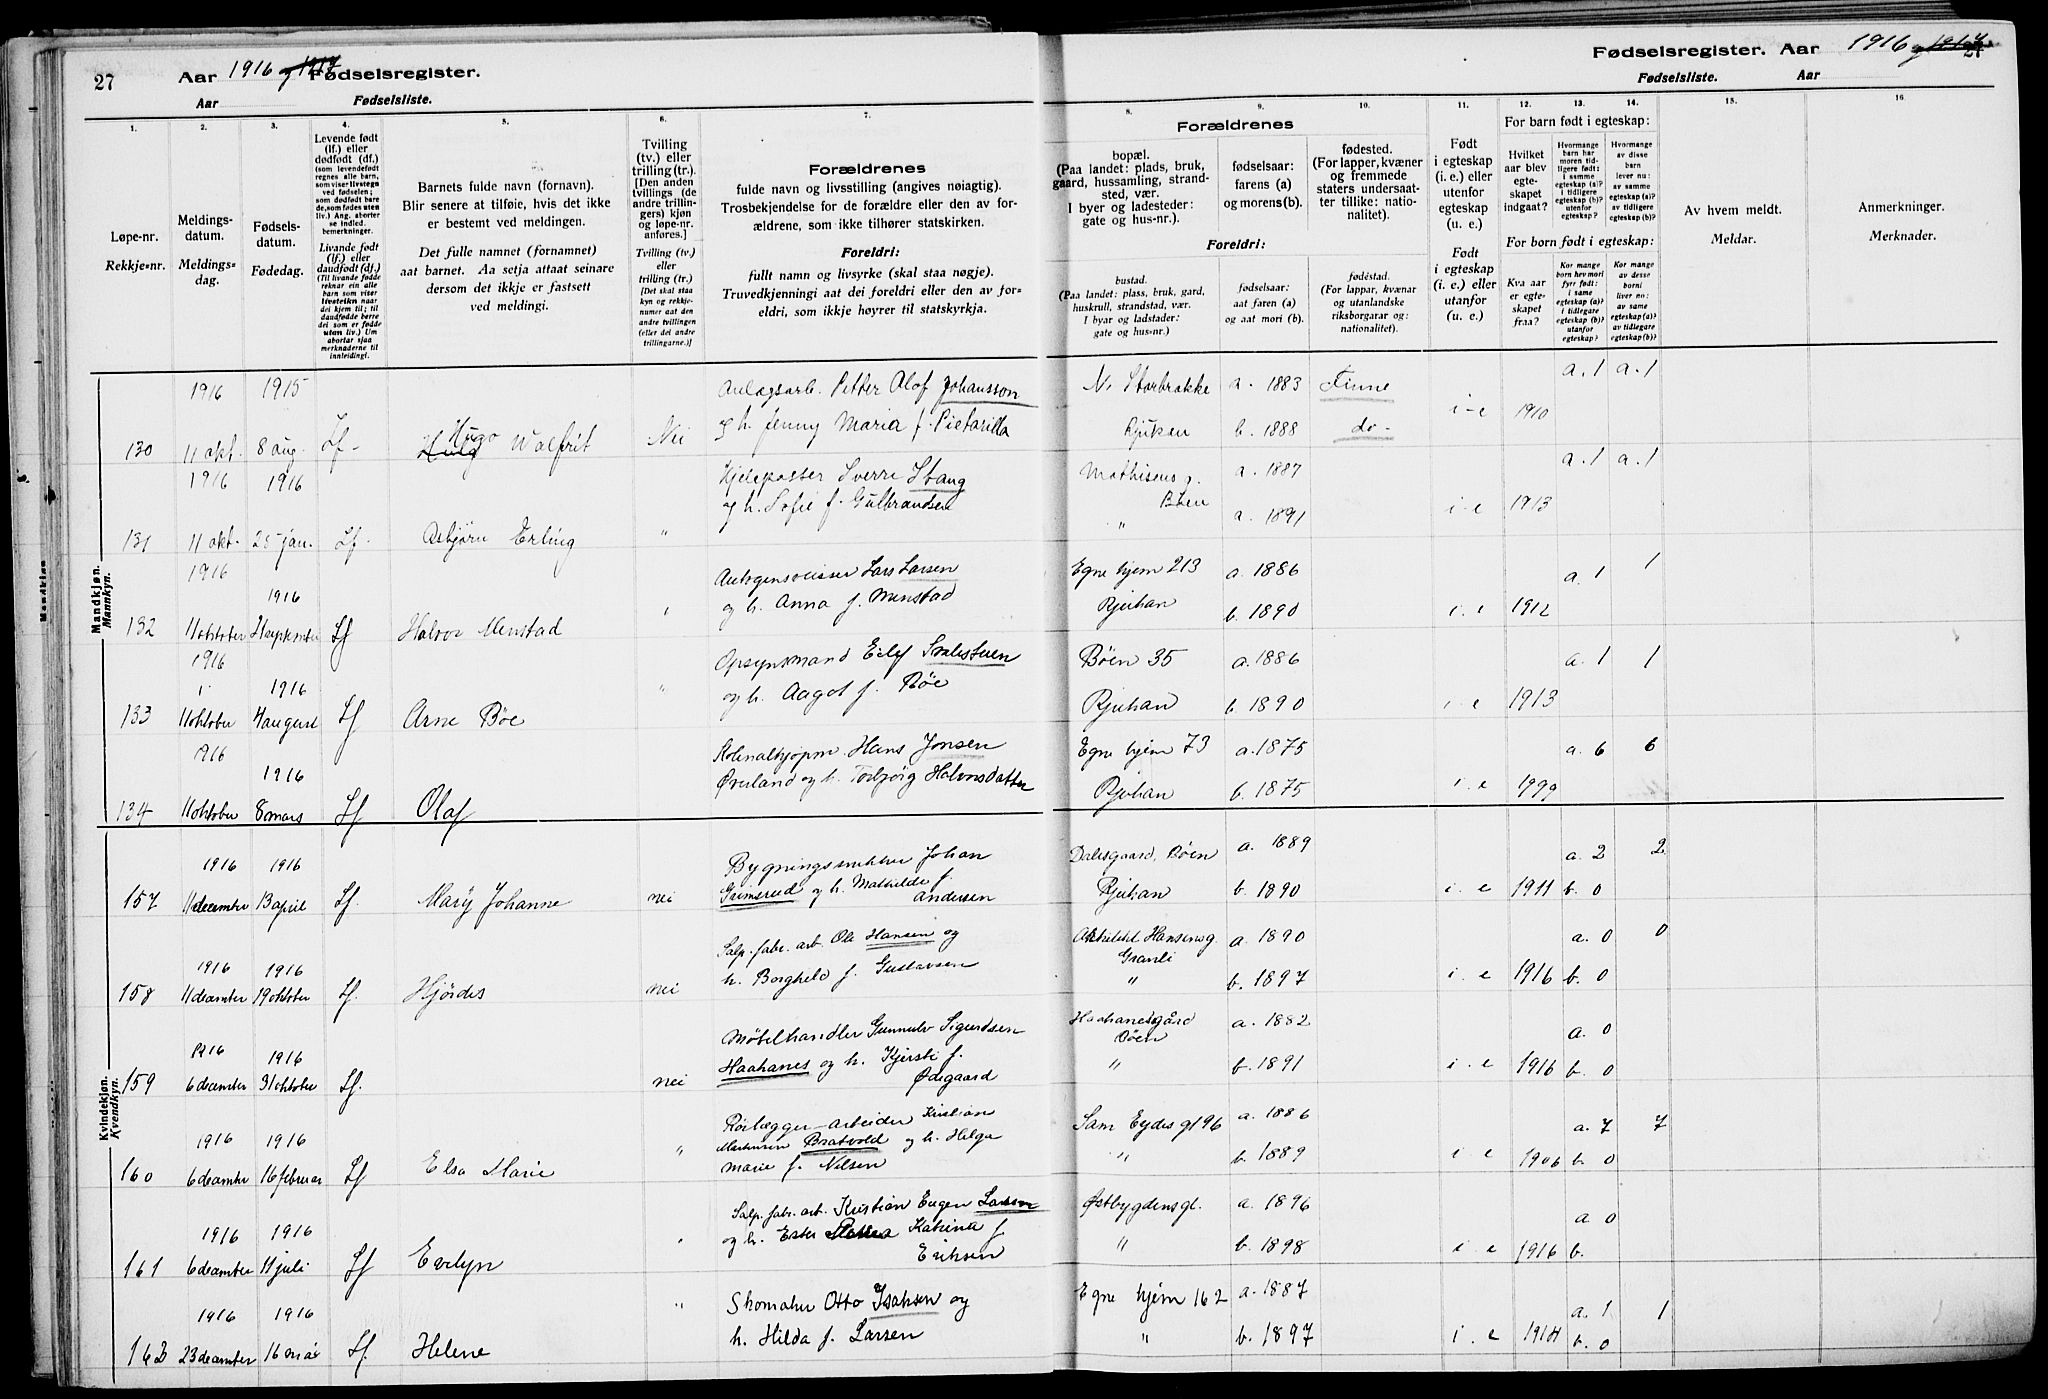 27
Aar 1916 og 1917 Fødselsregister.
Aar Fødselsliste.
Fødselsregister. Aar 1916 og 1917
27
Fødselsliste. Aar
1.
Løpe-nr.
Rekkje-nr.
2.
Meldings-
datum.
Meldings-
dag.
3.
Fødsels-
datum.
Fødedag.
4.
Levende født
(lf.) eller
dødfødt (df.)
(som levendefødt
regnes alle barn,
som viser livstegn
ved fødselen;
som dødfødt bare
de, som fødes uten
liv.) Ang. aborter
se indled.
bemerkninger.
Livande født
(lf.) eller
daudfødt (df.)
(Til livande fødde
reknar ein alle
barn som viser
livsteikn naar
dei kjem til; til
daudfødde berre
dei som er fødde
utan liv.) Um
abortar sjaa
merknaderne til
innleidingi.
5.
Barnets fulde navn (fornavn).
Blir senere at tilføie, hvis det ikke
er bestemt ved meldingen.
Det fulle namnet (fornamnet)
aat barnet. Aa setja attaat seinare
dersom det ikkje er fastsett
ved meldingi.
6.
Tvilling
(tv.) eller
trilling (tr.).
[Den anden
tvillings (de
andre trillin-
gers) kjøn
og løpe-nr.
anføres.]
Tvilling (tv.)
eller
trilling (tr.)
[Det skal staa
kyn og rekkje-
numer aat den
andre tvillingen
(eller dei andre
trillingarne.)]
7.
Forældrenes
fulde navn og livsstilling (angives nøiagtig).
Trosbekjendelse for de forældre eller den av for-
ældrene, som ikke tilhører statskirken.
Foreldri:
fullt namn og livsyrke (skal staa nøgje).
Truvedkjenningi aat dei foreldri eller den av for-
eldri, som ikkje høyrer til statskyrkja.
Forældrenes
8.
bopæl.
(Paa landet: plads, bruk,
gaard, hussamling, strand-
sted, vær.
I byer og ladesteder:
gate og hus-nr.).
9.
fødselsaar:
farens (a)
og morens (b).
10.
fødested.
(For lapper, kvæner
og fremmede
staters undersaat-
ter tillike: natio-
nalitet).
Foreldri:
bustad.
(Paa landet: plass, bruk, gard,
huskrull, strandstad, vær.
I byar og ladstader:
gate og hus-nr.)
fødselsaar:
aat faren (a)
og aat mori (b).
fødestad.
(For lappar, kvænar
og utanlandske
riksborgarar og:
nationalitet).
11.
Født
i egteskap
(i. e.) eller
utenfor
egteskap
(u. e.)
Født
i egteskap
(i. e.) eller
utanfor
(u. e.)
12.
13.
14.
For barn født i egteskap:
Hvilket
aar blev
egte-
skapet
indgaat?
Hvormange
barn har
moren tid-
ligere født:
i samme
egteskap (a)?
i tidligere
egteskap (b)?
utenfor
egteskap?
Hvormange
av disse
barn
lever nu:
av samme
egteskap (a)?
av tidligere
egteskap (b)?
For born født i egteskap:
Kva aar
er egte-
skapet
fraa?
Kor mange
born hev mori
fyrr født:
i same
egteskap (a)?
i tidlegare
egteskap (b)?
utanfor
egteskap?
Kor mange
av desse
borni
liver no:
av same
egteskap (a)?
av tidlegare
egteskap (b)?
15.
Av hvem meldt.
Meldar.
16.
Anmerkninger.
Merknader.
Mandkjøn.
Mannkyn.
130 1916 11 okt. 1915 8 aug. Lf. Hugo Walfrit Nei
Anlægsarb. Petter Olof Johansson
og h. Jenny Maria f. Pietarilla
N. Storbrakke a. 1883 Finne a. 1 a. 1
Rjukan b. 1888 do. i-e 1910
131 1916 11 okt. 1916 25 jan. Lf. Asbjørn Erling "
Sverre Stang
og h. Sofie f. Gulbrandsen
Mathisens g. a. 1887 a. 1 a. 1
Bøen
" a. 1891 i-e 1913
132 1916 11 oktober 1916 Lf Halvor Menstad "
Lars Larsen
og h. Anna f. Menstad
Egne hjem 213 a. 1886 a. 1 1
Rjukan b. 1890 i. e 1912
133 1916 11 oktober 1916 4 august Lf Arne Bøe "
Opsynsmand Eilef
og h. Aagot f. Bøe
Bøen 35 a. 1886 a. 1 1
Rjukan b. 1890 i. e 1913
134 1916 11 oktober 1916 8 mars Lf Olaf
Hans Jonsen
Øverland og h. Torbjørg Halvorsdatter
Egne hjem 73 a. 1875 a. 6 6
Rjukan b. 1875 i. e 1999
Kvindekjøn.
Kvendkyn.
157 1916 11 december 1916 13 april Lf. Mary Johanne nei
Bygningssnekker Johan
Grimsrud og h. Mathilde f.
Andersen
Dalsgaard, Bøen a. 1889 a. 2 2
Rjukan b. 1890 i. e 1911 b. 0
158 1916 11 december 1916 19 oktober Lf. Hjørdis nei
Salp. fabr. arb. Ole Hansen og
h. Borghild f. Gustavsen
Arkitekt Hansensg. a. 1890 a. 0 0
Granli
" b. 1897 i. e 1916 b. 0
159 1916 6 december 1916 31 oktober Lf. nei
Møbelhandler Gunnulv Sigurdsen
Haahanes og h. Kjersti f.
Ødegaard
Haahanesgård a. 1882 a. 0
Bøen
" b. 1891 i. e 1916 b. 0
160 1916 6 december 1916 16 februar Lf Elsa Marie "
Rørlægger-arbeider Kristian
Martinsen Bratvold og h. Helga
Marie f. Nilsen
Sam Eydes gt 96 a. 1886 a. 7 7
" b. 1889 i. e 1906 b. 0
161 1916 6 december 1916 11 juli Lf Evelyn "
Salp. fabr. arb. Kristian Eugen Larsen
og h. Ester Katrina f.
Eriksen
Østbygdensgt. a. 1896 a 0
" b. 1898 i. e 1916 b.
162 1916 23 december 1916 16 mai Lf. Helene "
Skomaker Otto Isaksen og
h. Hilda f. Larsen
Egne hjem 162 a. 1887 a. 1 1
" b. 1897 i. e 1914 b. 0